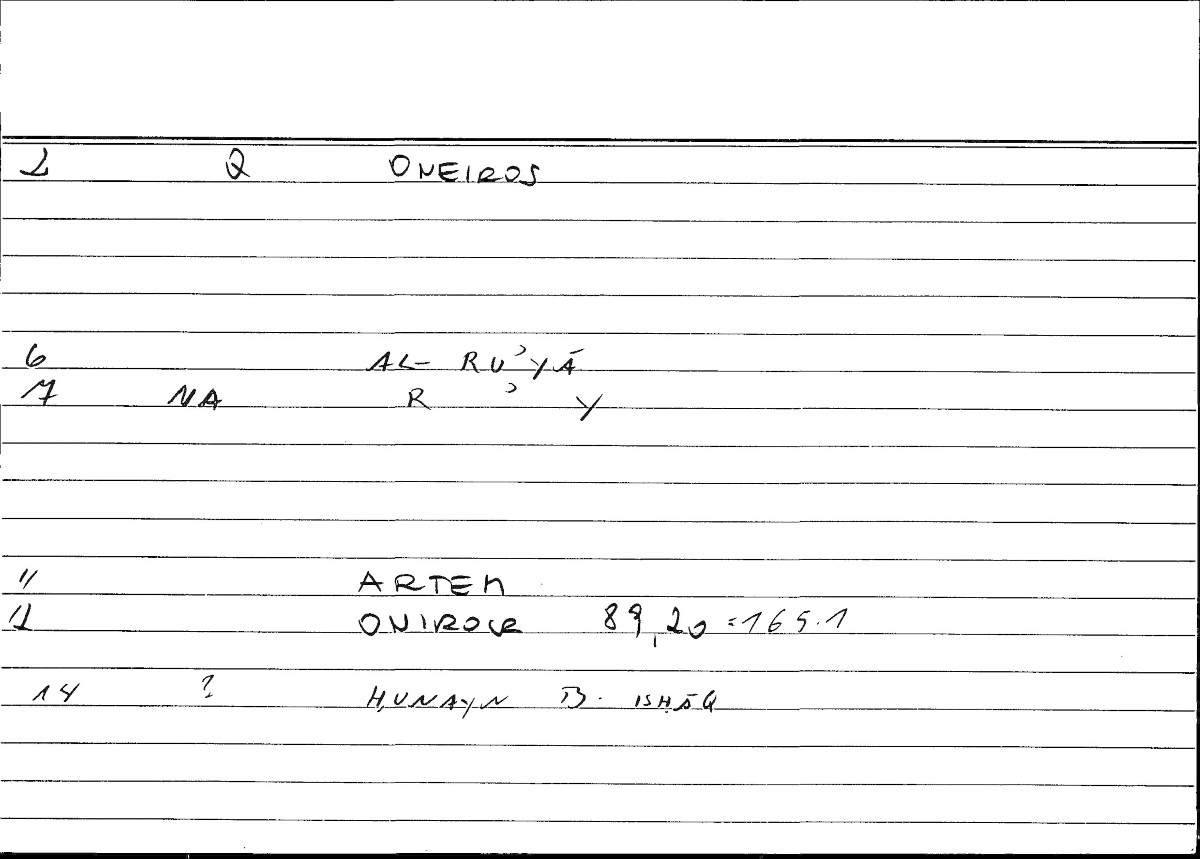 1 Q ONEIROS
6 AL- RUʾYĀ
7 NA R ʾ Y
11 ARTEM
12 ONIROCR 89,20 = 165.1
14 ? ḤUNAYN B. ISḤĀQ